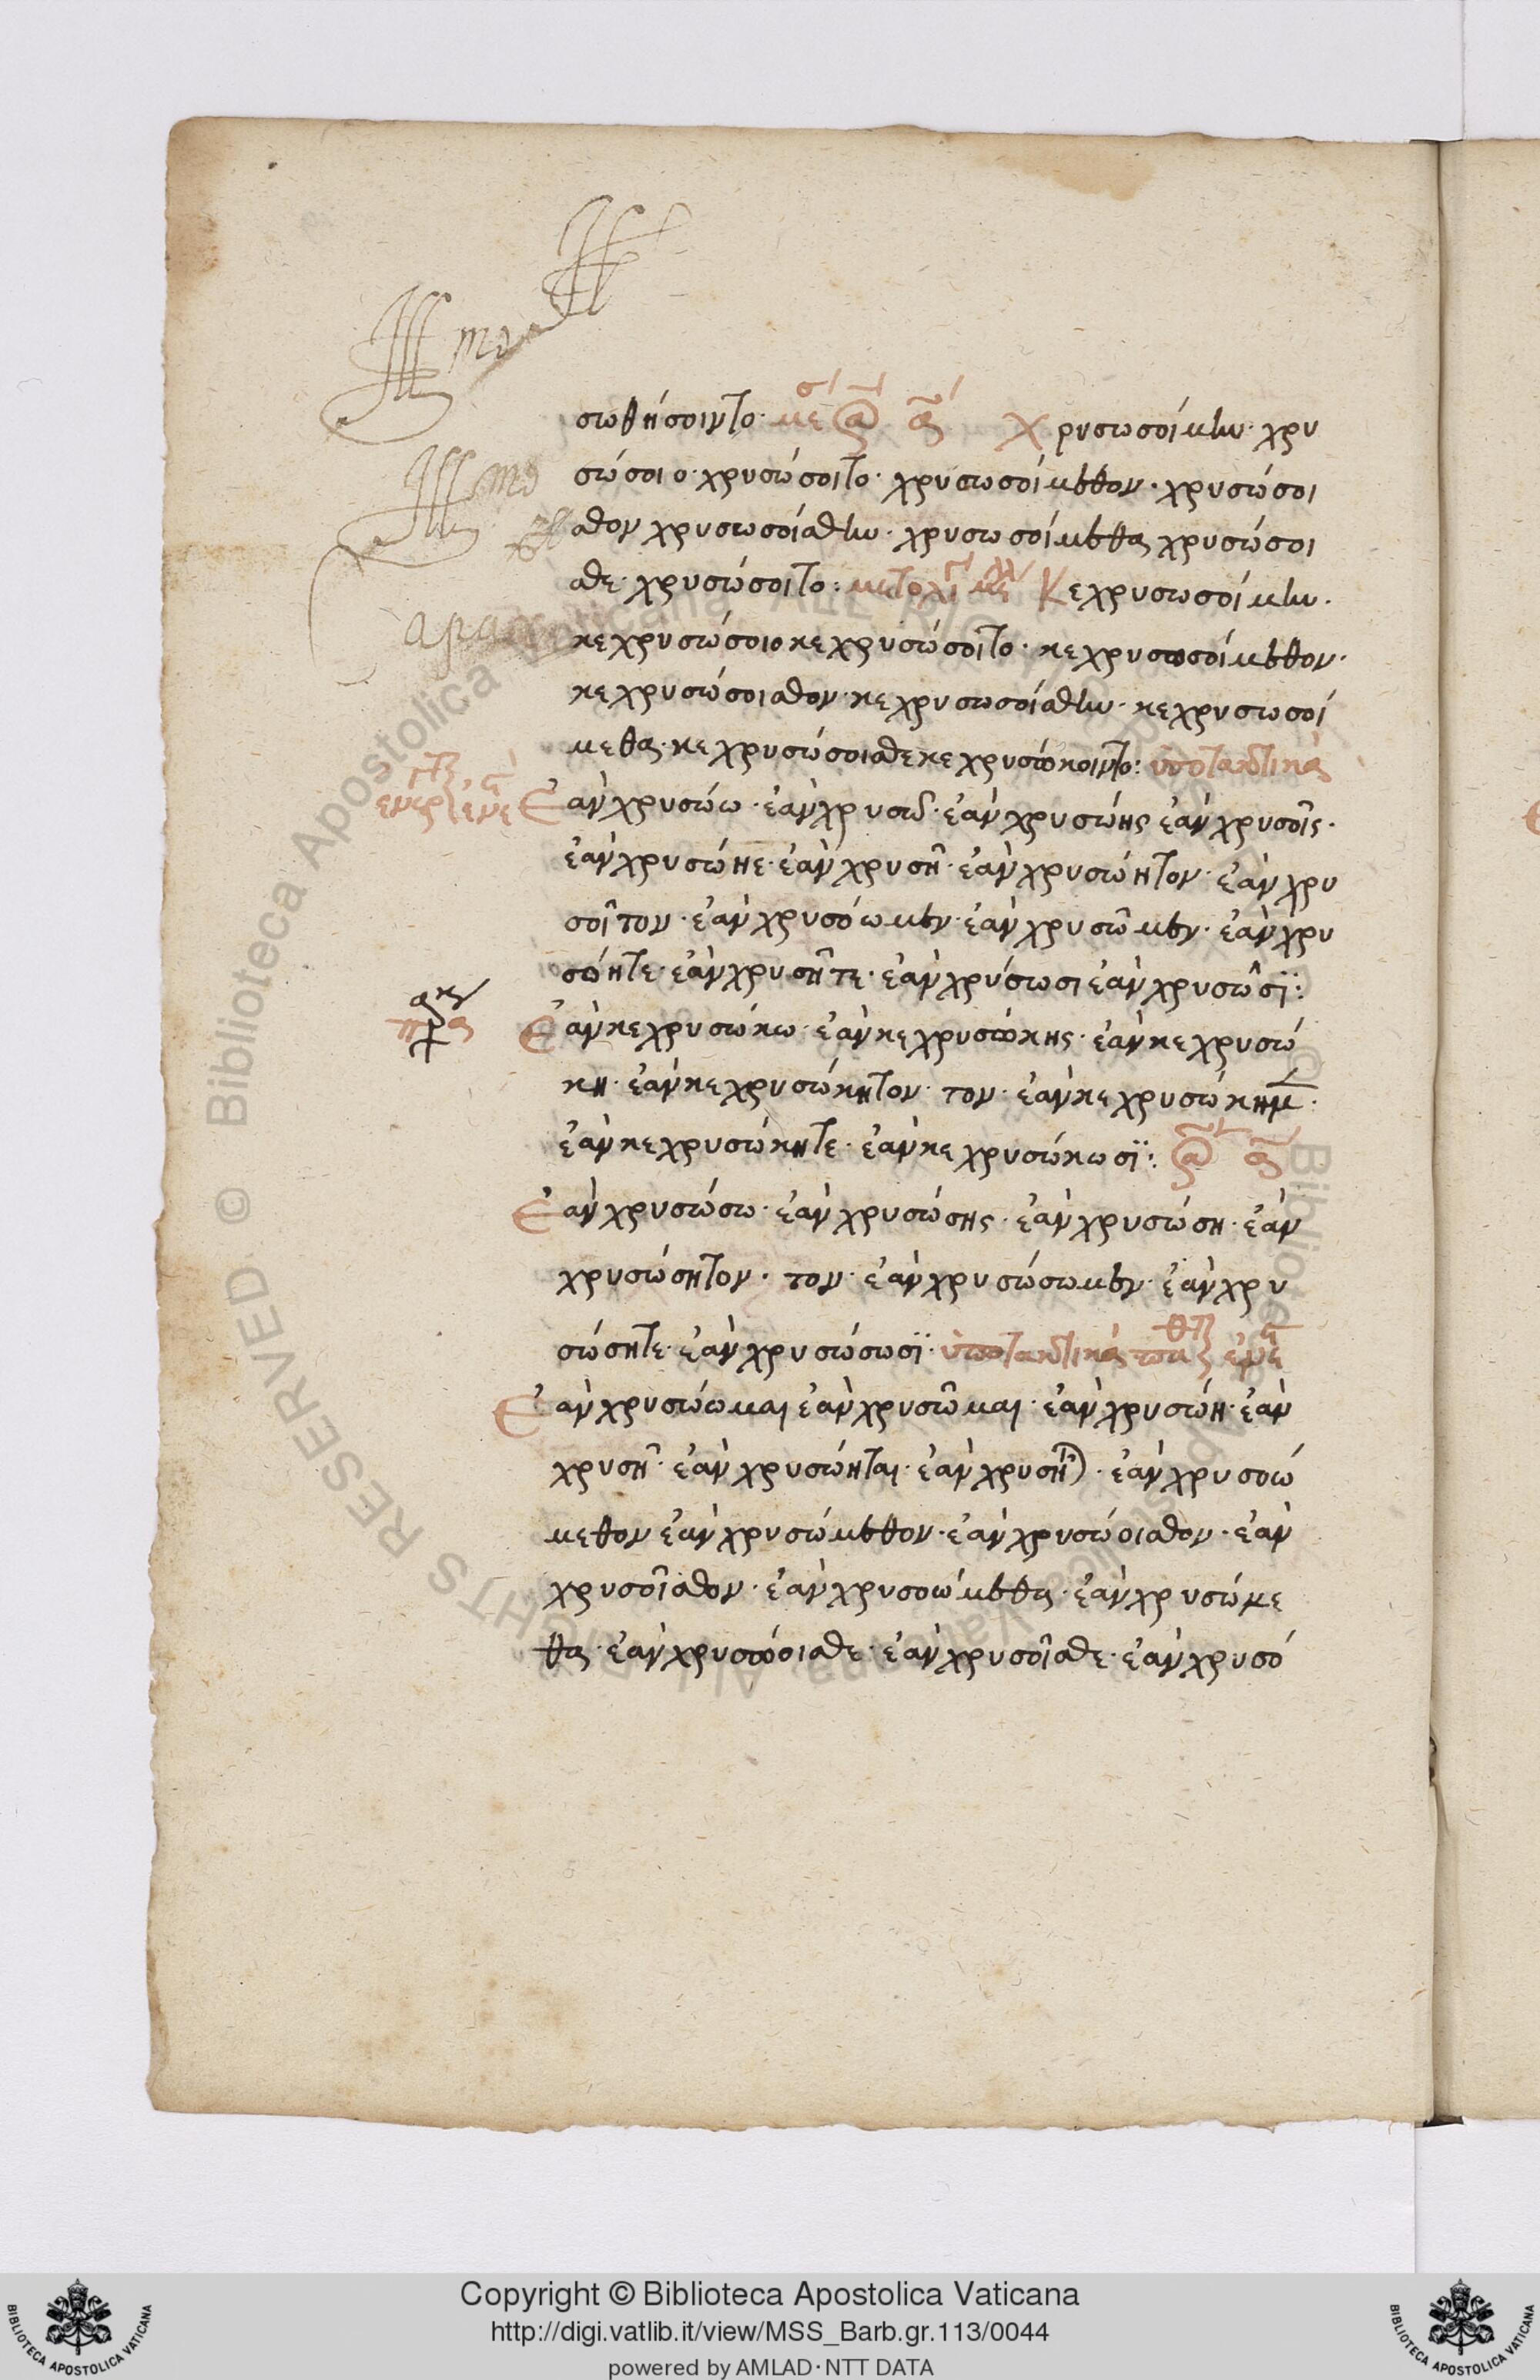 Illmo
Illmo
σωθήσοιντο. Χρυσωσοίμην. χρυ
σώσοιο. χρυσώσοιτο. χρυσωσοίμεθον. χρυσώσοι
σθον χρυσωσοίσθην. χρυσωσοίμεθα χρυσώσοι
σθε. χρυσώσοιτο: Κεχρυσωσοίμην.
κεχρυσώσοιο κεχρυσώσοιτο. κεχρυσωσοίμεθον.
κεχρυσώσοισθον. κεχρυσωσοίσθην. κεχρυσωσοί
μεθα. κεχρυσώσοισθε κεχρυσώκοιντο: ὑποτακτικὰ
Ἐὰν χρυσώω. ἐὰν χρυσῶ. ἐὰν χρυσώης ἐὰν χρυσοῖς.
ἐὰν χρυσώηε. ἐὰν χρυσῆ. ἐὰν χρυσώητον. ἐὰν χρυ
σοῖτον. ἐὰν χρυσόωμεν. ἐὰν χρυσῶμεν. ἐὰν χρυ
σόητε. ἐὰν χρυσῆτε. ἐὰν χρύσωσι ἐὰν χρυσῶσϊ:
Ἐὰν κεχρυσώκω. ἐὰν κεχρυσώκης. ἐὰν κεχρυσώ
κη. ἐὰν κεχρυσώκητον. τον. ἐὰν κεχρυσώκημ.
ἐὰν κεχρυσώκητε. ἐὰν κεχρυσώκωσϊ:
Ἐὰν χρυσώσω. ἐὰν χρυσώσης. ἐὰν χρυσώση. ἐὰν
χρυσώσητον. τον. ἐὰν χρυσώσωμεν. ἐὰν χρυ
σώσητε. ἐὰν χρυσώσωσϊ. ὑποτακτικὰ
Ἐὰν χρυσώωμαι ἐὰν χρυσῶμαι. ἐὰν χρυσώη. ἐὰν
χρυσῆ. ἐὰν χρυσώηται. ἐὰν χρυσῆται. ἐὰν χρυσοώ
μεθον ἐὰν χρυσώμεθον. ἐὰν χρυσώοισθον. ἐὰν
χρυσοῖσθον. ἐὰν χρυσοώμεθα. ἐὰν χρυσώμε
θα. ἐὰν χρυσώοισθε. ἐὰν χρυσοῖσθε. ἐὰν χρυσό
© Biblioteca Apostolica Vaticana ALL RIGHTS RESERVED
Copyright © Biblioteca Apostolica Vaticana
http://digi.vatlib.it/view/MSS_Barb.gr.113/0044
powered by AMLAD · NTT DATA
BIBLIOTECA APOSTOLICA VATICANA
BIBLIOTECA APOSTOLICA VATICANA